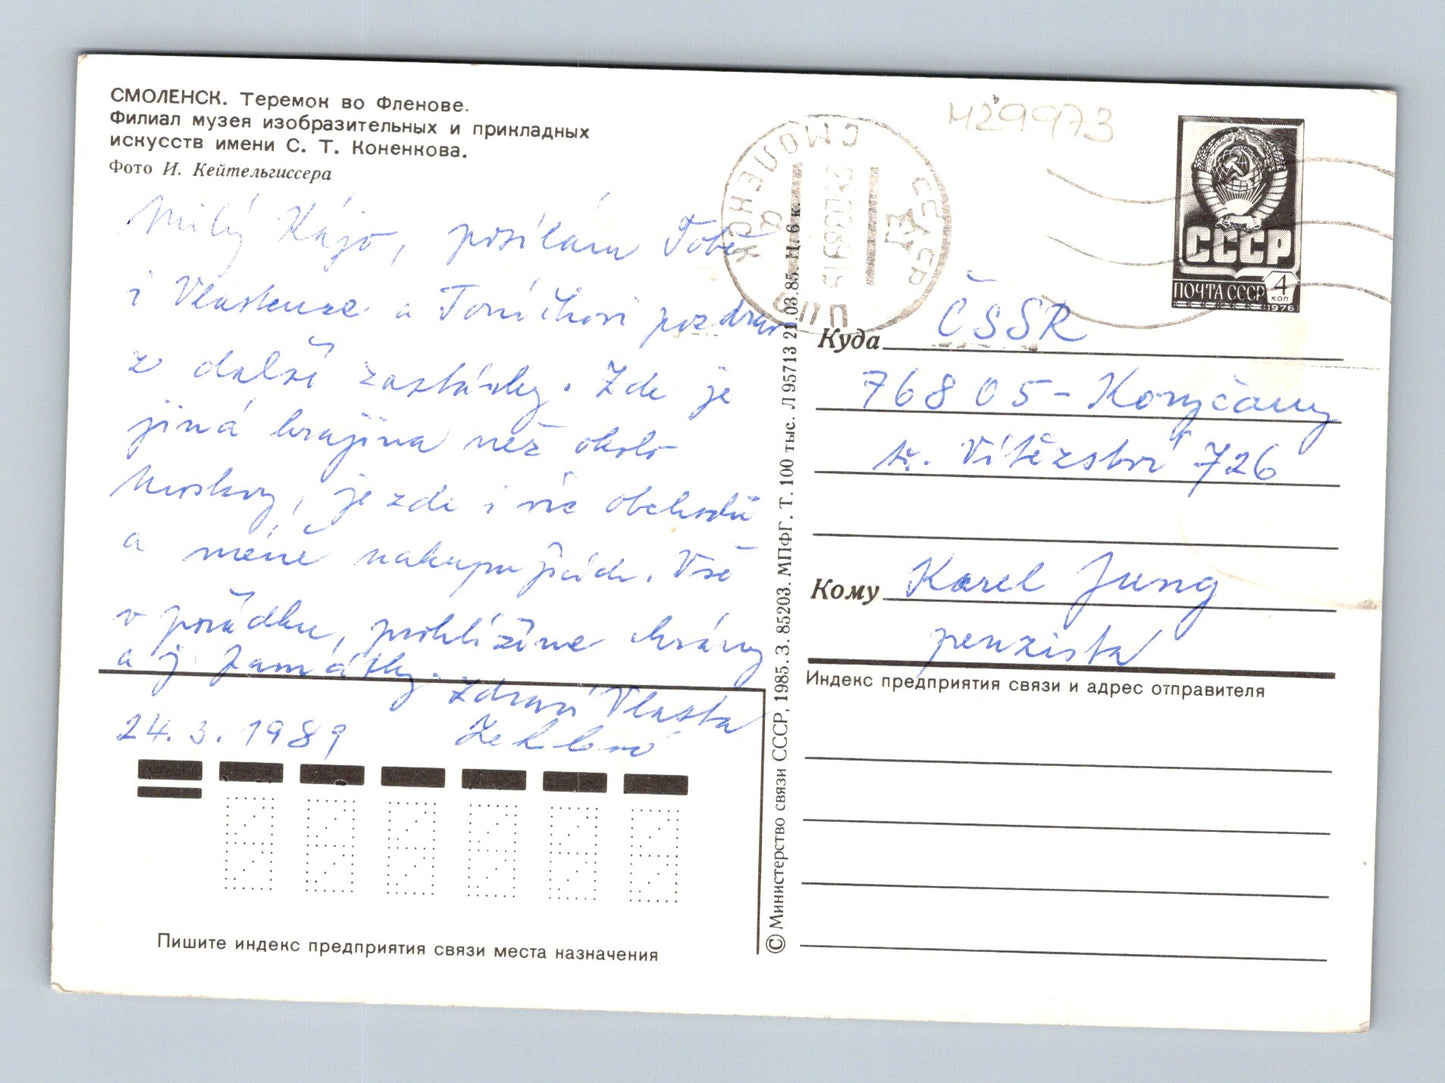 СМОЛЕНСК. Теремок во Фленове.
Филиал музея изобразительных и прикладных
искусств имени С. Т. Коненкова.
Фото И. Кейтельгиссера
Milý Kájo, posílám Tobě
i Vlastence a Toníčkovi pozdrav
z další zastávky. Zde je
jiná krajina než okolo
Moskvy, je zde i víc obchodů
a méně nakupujících. Vše
v pořádku, prohlížíme chrámy
a j. památky. Zdraví Vlasta
24.3.1989
© Министерство связи СССР, 1985. З. 85203. МПФГ. Т. 100 тыс. Л 95713 21.03.85. Ц. 6 к.
М29973
СМОЛЕНСК
СССР
ПОЧТА СССР 4 коп
1976
Куда ČSSR
76805 - Koryčany
tř. Vítězství 726
Кому Karel Jung
penzista
Индекс предприятия связи и адрес отправителя
Пишите индекс предприятия связи места назначения